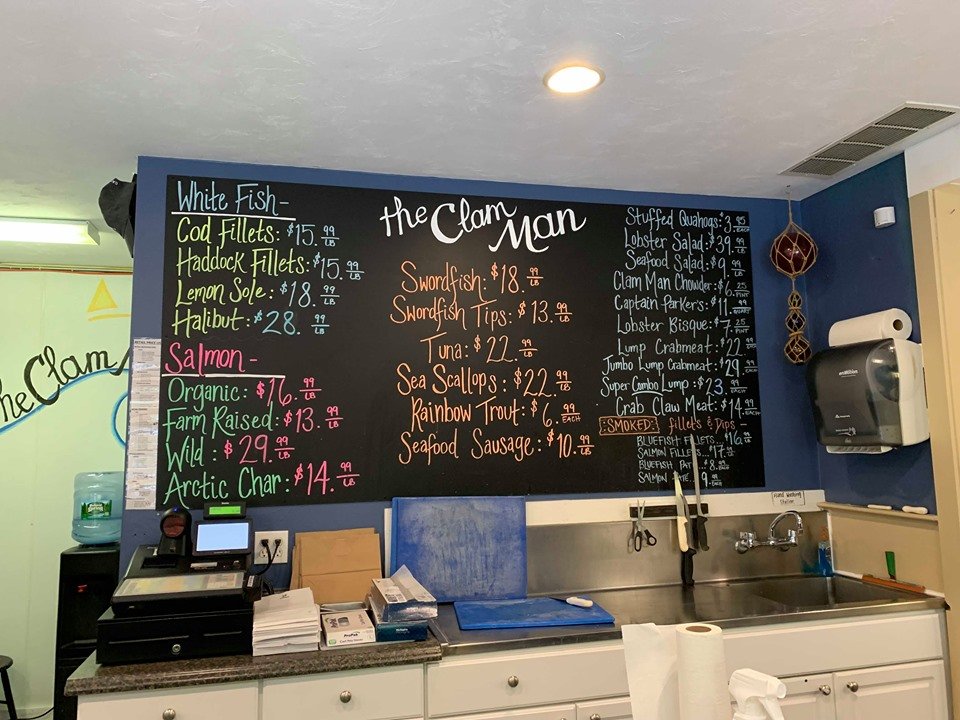 White Fish-
Cod Fillets: $15.99 LB
Haddock Fillets: $15.99 LB
Lemon Sole: $18.99 LB
Halibut: $28.99 LB
Salmon-
Organic: $16.99 LB
Farm Raised: $13.99 LB
Wild: $29.99 LB
Arctic Char: $14.99 LB
the Clam Man
Swordfish: $18.99 LB
Swordfish Tips: $13.99 LB
Tuna: $22.99 LB
Sea Scallops: $22.99 LB
Rainbow Trout: $6.99 EACH
Seafood Sausage: $10.99 LB
Stuffed Quahogs: $3.95 EACH
Lobster Salad: $39.99 LB
Seafood Salad: $9.99 LB
Clam Man Chowder: $6.25 PINT
Captain Parker's: $11.99
Lobster Bisque: $7.25 PINT
Lump Crabmeat: $22.99
Jumbo Lump Crabmeat: $29.99
Super Combo Lump: $23.99
Crab Claw Meat: $14.99 EACH
:SMOKED: fillets & Dips-
BLUEFISH FILLETS... $16.99 LB
SALMON FILLETS...
BLUEFISH 8.99
SALMON 9
The Clam
Hand Washing Station